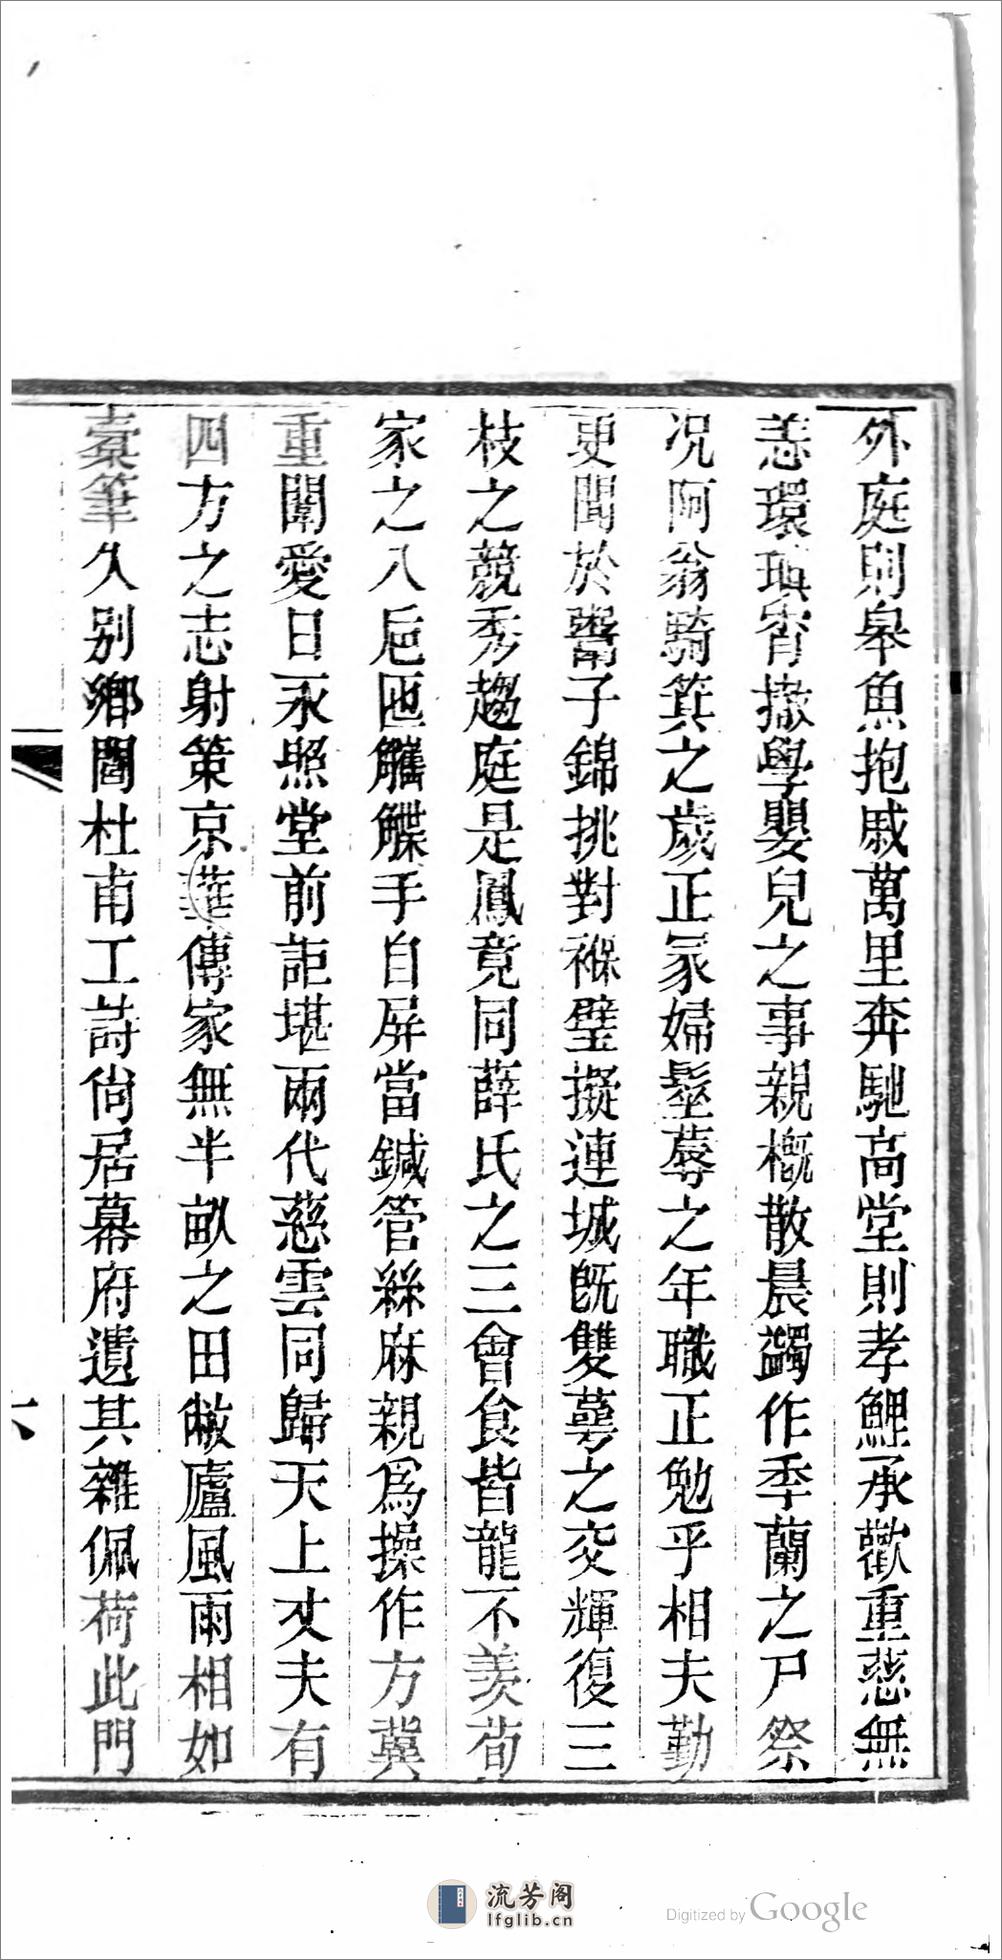 外庭則皋魚抱戚萬里奔馳高堂則孝鯉承歡重慈無
恙環瑱宵撤學嬰兒之事親槪散晨蠲作季蘭之尸祭
况阿翁騎箕之歲正冢婦髽蓐之年職正勉乎相夫勤
更聞於鬻子錦挑對褓璧擬連城旣雙萼之交輝復三
枝之競秀趨庭是鳳竟同薛氏之三會食皆龍不羨荀
家之八巵匜觿韘手自屏當鍼管絲麻親爲操作方冀
重闈愛日永照堂前詎堪兩代慈雲同歸天上丈夫有
四方之志射策京華傳家無半畝之田敝廬風雨相如
橐筆久别鄉閭杜甫工詩尙居幕府遺其雜佩荷此門
六
流芳阁
lfglib.cn
Digitized by Google